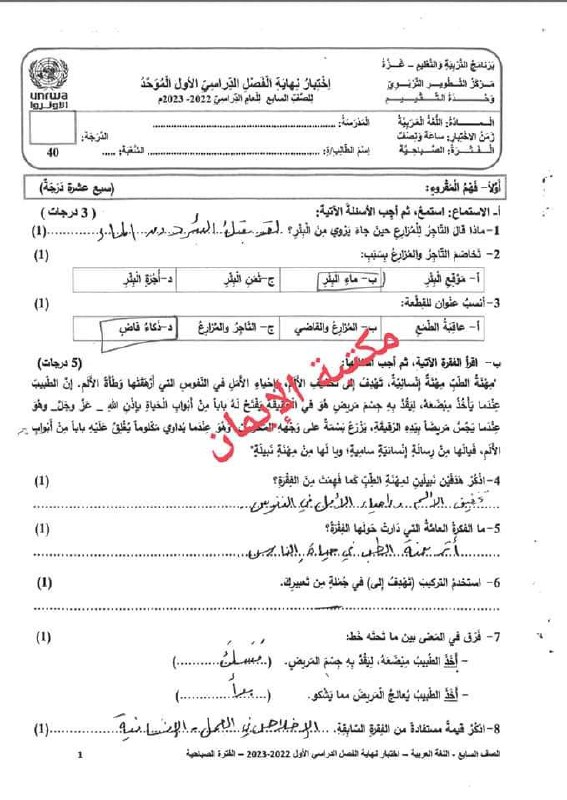 برنامج التربية والتعليم - غزة
مركز التطوير التربوي
وحدة التقييم
unrwa
الأونروا
اختبار نهاية الفصل الدراسي الأول الموحد
للصف السابع للعام الدراسي 2022-2023م
المادة: اللغة العربية
زمن الاختبار: ساعة ونصف
الفترة: الصباحية
المدرسة:
اسم الطالب/ة: الشعبة:
الدرجة:
40
أولاً- فهم المقروء: (سبع عشرة درجة)
أ- الاستماع: استمع، ثم أجب الأسئلة الآتية: ( 3 درجات )
1- ماذا قال التاجر للمزارع حين جاء يروي من البئر؟ لقد بعتك البئر دون الماء (1)
2- تخاصم التاجر والمزارع بسبب: (1)
أ- موقع البئر ب- ماء البئر ج- ثمن البئر د- أجرة البئر
3- أنسب عنوان للقطعة: (1)
أ- عاقبة الطمع ب- المزارع والقاضي ج- التاجر والمزارع د- ذكاء قاض
ب- اقرأ الفقرة الآتية، ثم أجب (5 درجات)
"مهنة الطب مهنة إنسانية، تهدف إلى الألم، وإحياء الأمل في النفوس التي أرهقتها وطأة الألم. إن الطبيب
عندما يأخذ مبضعه، ليقد به جسم مريض هو في الحقيقة يفتح له باباً من أبواب الحياة بإذن الله - عز وجل- وهو
عندما يجس مريضاً بيده الرقيقة، يزرع بسمة على وجهه وهو عندما يداوي مكلوماً يغلق عليه باباً من أبواب
الألم، فيالها من رسالة إنسانية سامية! ويا لها من مهنة نبيلة"
4- اذكر هدفين نبيلين لمهنة الطب كما فهمت من الفقرة؟ (1)
تخفيف الألم وإحياء الأمل في النفوس
5- ما الفكرة العامة التي دارت حولها الفقرة؟ (1)
أثر مهنة الطب في حياة الناس
6- استخدم التركيب (تهدف إلى) في جملة من تعبيرك. (1)
7- فرق في المعنى بين ما تحته خط: (1)
- أخذ الطبيب مبضعه، ليقد به جسم المريض. (مسك)
- أخذ الطبيب يعالج المريض مما يشكو. (بدأ)
8- اذكر قيمة مستفادة من الفقرة السابقة. الإخلاص في العمل - الإنسانية (1)
الصف السابع - اللغة العربية - اختبار نهاية الفصل الدراسي الأول 2022-2023 - الفترة الصباحية 1
مكتبة الإيمان